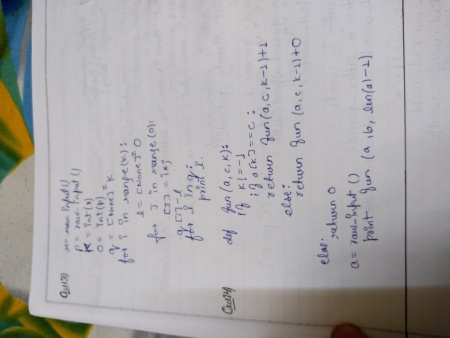 Q.no 13)
x = raw_input()
p = raw_input()
k = int(x)
o = int(p)
q = [None] * k
for i in range(k):
l = [None] * o
for j in range(o):
l[j] = i*j
q[i] = l
for l in q:
print l.
Q.no 14)
def fun(a, c, k):
if k != -1
if a[k] == c :
return fun(a, c, k-1)+1
else:
return fun (a, c, k-1)+0
else: return 0
a = raw-input ()
print fun (a, b, len(a)-1)